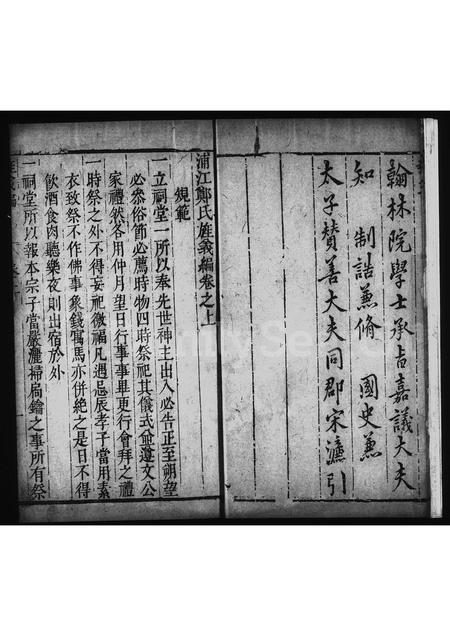 翰林院學士承旨嘉議大夫
知　制誥兼修　國史兼
太子贊善大夫同郡宋濂引
浦江鄭氏旌義編卷之上
規範
一立祠堂一所以奉先世神主出入必告正至朔望
必參俗節必薦時物四時祭祀其儀式並遵文公
家禮然各用仲月望日行事事畢更行會拜之禮
一時祭之外不得妄祀徼福凡遇忌辰孝子當用素
衣致祭不作佛事象錢寓馬亦併絶之是日不得
飲酒食肉聽樂夜則出宿於外
一祠堂所以報本宗子當嚴灑掃扃鑰之事所有祭